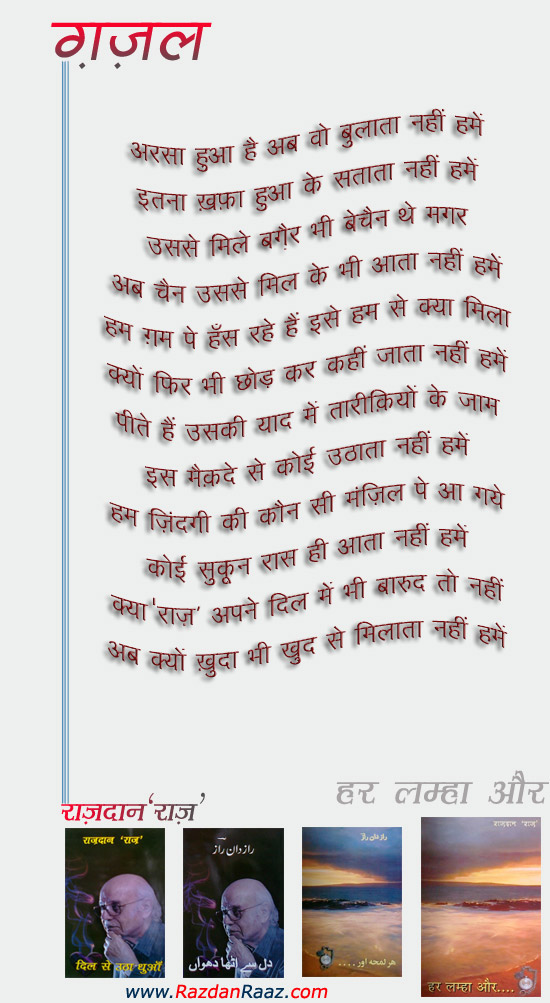 ग़ज़ल
अरसा हुआ है अब वो बुलाता नहीं हमें
इतना ख़फ़ा हुआ के सताता नहीं हमें
उससे मिले बग़ैर भी बेचैन थे मगर
अब चैन उससे मिल के भी आता नहीं हमें
हम ग़म पे हँस रहे हैं इसे हम से क्या मिला
क्यों फिर भी छोड़ कर कहीं जाता नहीं हमें
पीते हैं उसकी याद में तारीक़ियों के जाम
इस मैक़दे से कोई उठाता नहीं हमें
हम ज़िंदगी की कौन सी मंज़िल पे आ गये
कोई सुकून रास ही आता नहीं हमें
क्या 'राज़' अपने दिल में भी बारुद तो नहीं
अब क्यों ख़ुदा भी ख़ुद से मिलाता नहीं हमें
हर लम्हा और
राज़दान 'राज़'
राज़दान 'राज़'
दिल से उठा धुआँ
راز دان راز
دل سے اٹھا دھواں
راز دان راز
ہر لمحہ اور ....
राज़दान 'राज़'
हर लम्हा और....
www.RazdanRaaz.com